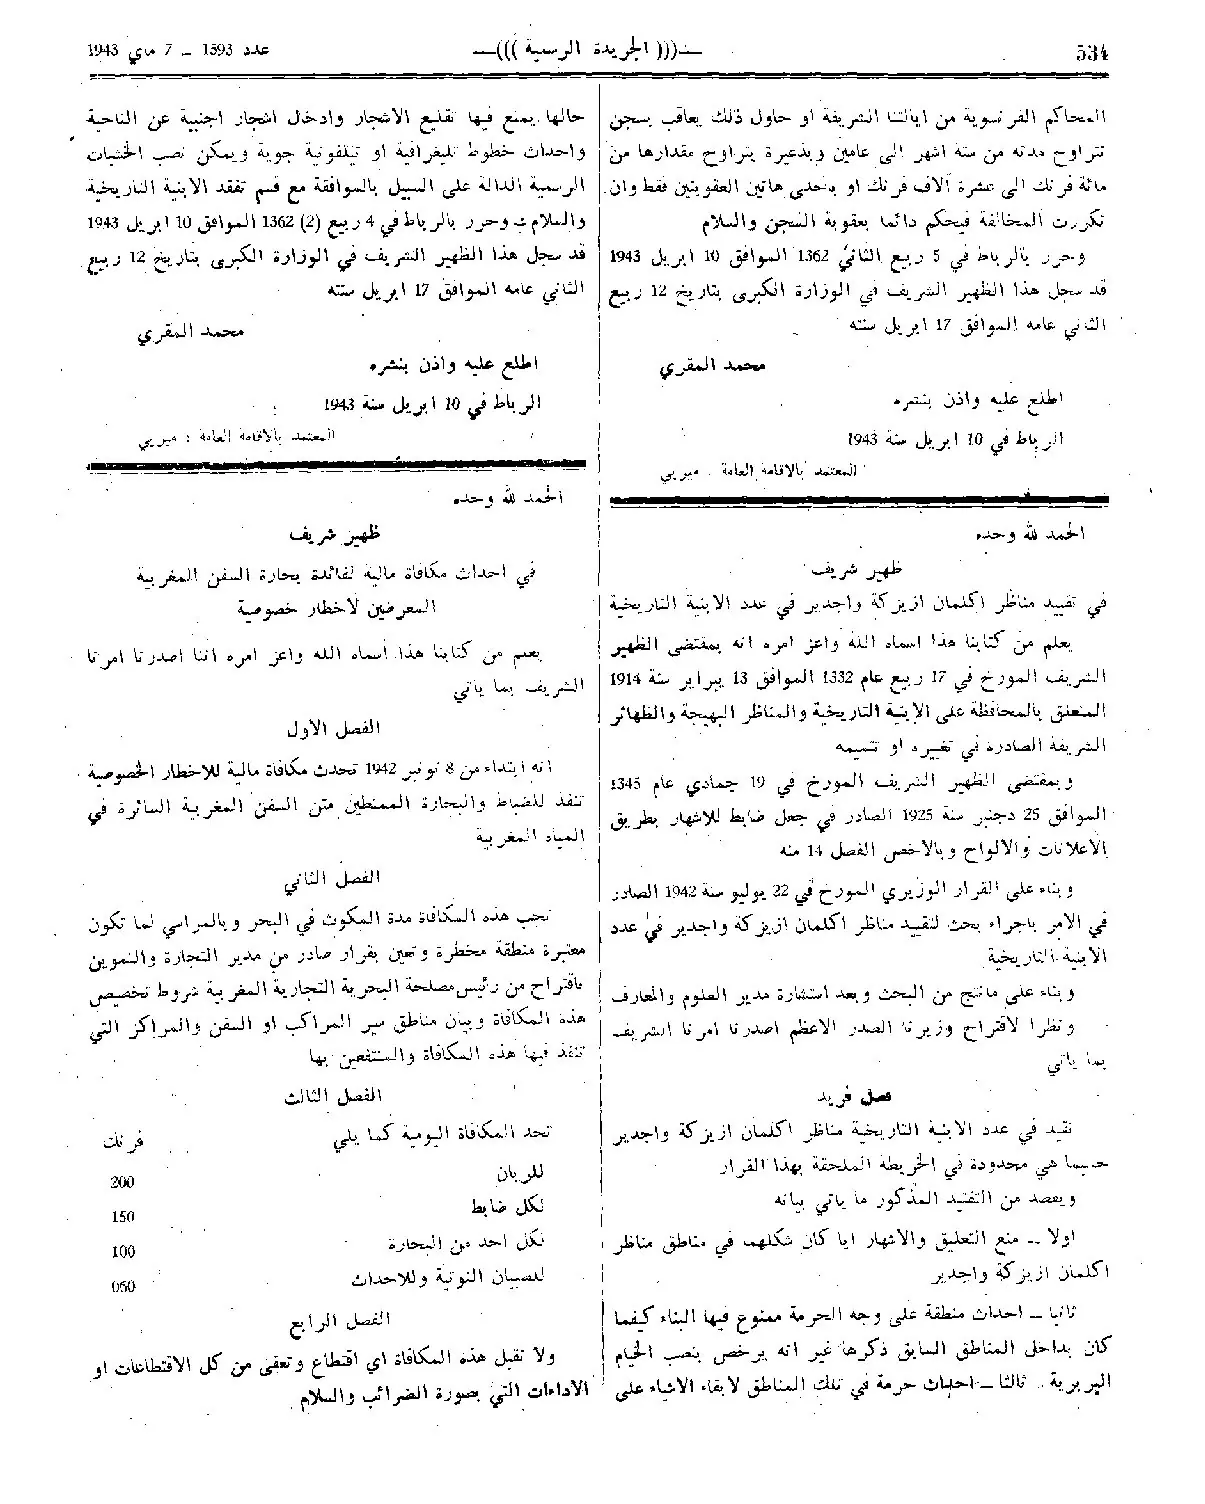 534
—((( الجريدة الرسمية )))—
عدد 1593 — 7 ماي 1943
المحاكم الفرنسوية من ايالتنا الشريفة او حاول ذلك يعاقب بسجن
تتراوح مدته من ستة اشهر الى عامين وبذعيرة يتراوح مقدارها من
مائة فرنك الى عشرة آلاف فرنك او باحدى هاتين العقوبتين فقط وان
تكررت المخالفة فيحكم دائما بعقوبة السجن والسلام
وحرر بالرباط في 5 ربيع الثاني 1362 الموافق 10 ابريل 1943
قد سجل هذا الظهير الشريف في الوزارة الكبرى بتاريخ 12 ربيع
الثاني عامه الموافق 17 ابريل سنته
محمد المقري
اطلع عليه واذن بنشره
الرباط في 10 ابريل سنة 1943
المعتمد بالاقامة العامة : ميريي
الحمد لله وحده
ظهير شريف
في تقييد مناظر اكلمان ازيزكة واجدير في عدد الابنية التاريخية
يعلم من كتابنا هذا اسماه الله واعز امره انه بمقتضى الظهير
الشريف المورخ في 17 ربيع عام 1332 الموافق 13 يبراير سنة 1914
المتعلق بالمحافظة على الابنية التاريخية والمناظر البهيجة والظهائر
الشريفة الصادرة في تغييره او تتميمه
وبمقتضى الظهير الشريف المورخ في 19 جمادي عام 1345
الموافق 25 دجنبر سنة 1925 الصادر في جعل ضابط للاشهار بطريق
الاعلانات والالواح وبالاخص الفصل 14 منه
وبناء على القرار الوزيري المورخ في 22 يوليو سنة 1942 الصادر
في الامر باجراء بحث لتقييد مناظر اكلمان ازيزكة واجدير في عدد
الابنية التاريخية
وبناء على ما نتج من البحث وبعد استشارة مدير العلوم والمعارف
ونظرا لاقتراح وزيرنا الصدر الاعظم اصدرنا امرنا الشريف
بما ياتي
فصل فريد
تقيد في عدد الابنية التاريخية مناظر اكلمان ازيزكة واجدير
حسبما هي محدودة في الخريطة الملحقة بهذا القرار
ويقصد من التقييد المذكور ما ياتي بيانه
اولا — منع التعليق والاشهار ايا كان شكلهما في مناطق مناظر
اكلمان ازيزكة واجدير
ثانيا — احداث منطقة على وجه الحرمة ممنوع فيها البناء كيفما
كان بداخل المناطق السابق ذكرها غير انه يرخص بنصب الخيام
البربرية . ثالثا — احداث حرمة في تلك المناطق لابقاء الاشياء على
حالها يمنع فيها تقليع الاشجار وادخال اشجار اجنبية عن الناحية
واحداث خطوط تليغرافية او تيلفونية جوية ويمكن نصب الخشبات
الرسمية الدالة على السبيل بالموافقة مع قسم تفقد الابنية التاريخية
والسلام وحرر بالرباط في 4 ربيع (2) 1362 الموافق 10 ابريل 1943
قد سجل هذا الظهير الشريف في الوزارة الكبرى بتاريخ 12 ربيع
الثاني عامه الموافق 17 ابريل سنته
محمد المقري
اطلع عليه واذن بنشره
الرباط في 10 ابريل سنة 1943
المعتمد بالاقامة العامة : ميريي
الحمد لله وحده
ظهير شريف
في احداث مكافاة مالية لفائدة بحارة السفن المغربية
المعرضين لاخطار خصوصية
يعلم من كتابنا هذا أسماه الله واعز امره اننا اصدرنا امرنا
الشريف بما ياتي
الفصل الاول
انه ابتداء من 8 نونبر 1942 تحدث مكافاة مالية للاخطار الخصوصية
تنفذ للضباط والبحارة الممتطين متن السفن المغربية السائرة في
المياه المغربية
الفصل الثاني
تجب هذه المكافاة مدة المكوث في البحر وبالمراسي لما تكون
معتبرة منطقة مخطرة وتعين بقرار صادر من مدير التجارة والتموين
باقتراح من رئيس مصلحة البحرية التجارية المغربية شروط تخصيص
هذه المكافاة وبيان مناطق سير المراكب او السفن والمراكز التي
تنفذ فيها هذه المكافاة والمنتفعين بها
الفصل الثالث
تحد المكافاة اليومية كما يلي فرنك
للربان 200
لكل ضابط 150
لكل احد من البحارة 100
للصبيان النوتية وللاحداث 050
الفصل الرابع
ولا تقبل هذه المكافاة اي اقتطاع وتعفى من كل الاقتطاعات او
الاداءات التي بصورة الضرائب والسلام